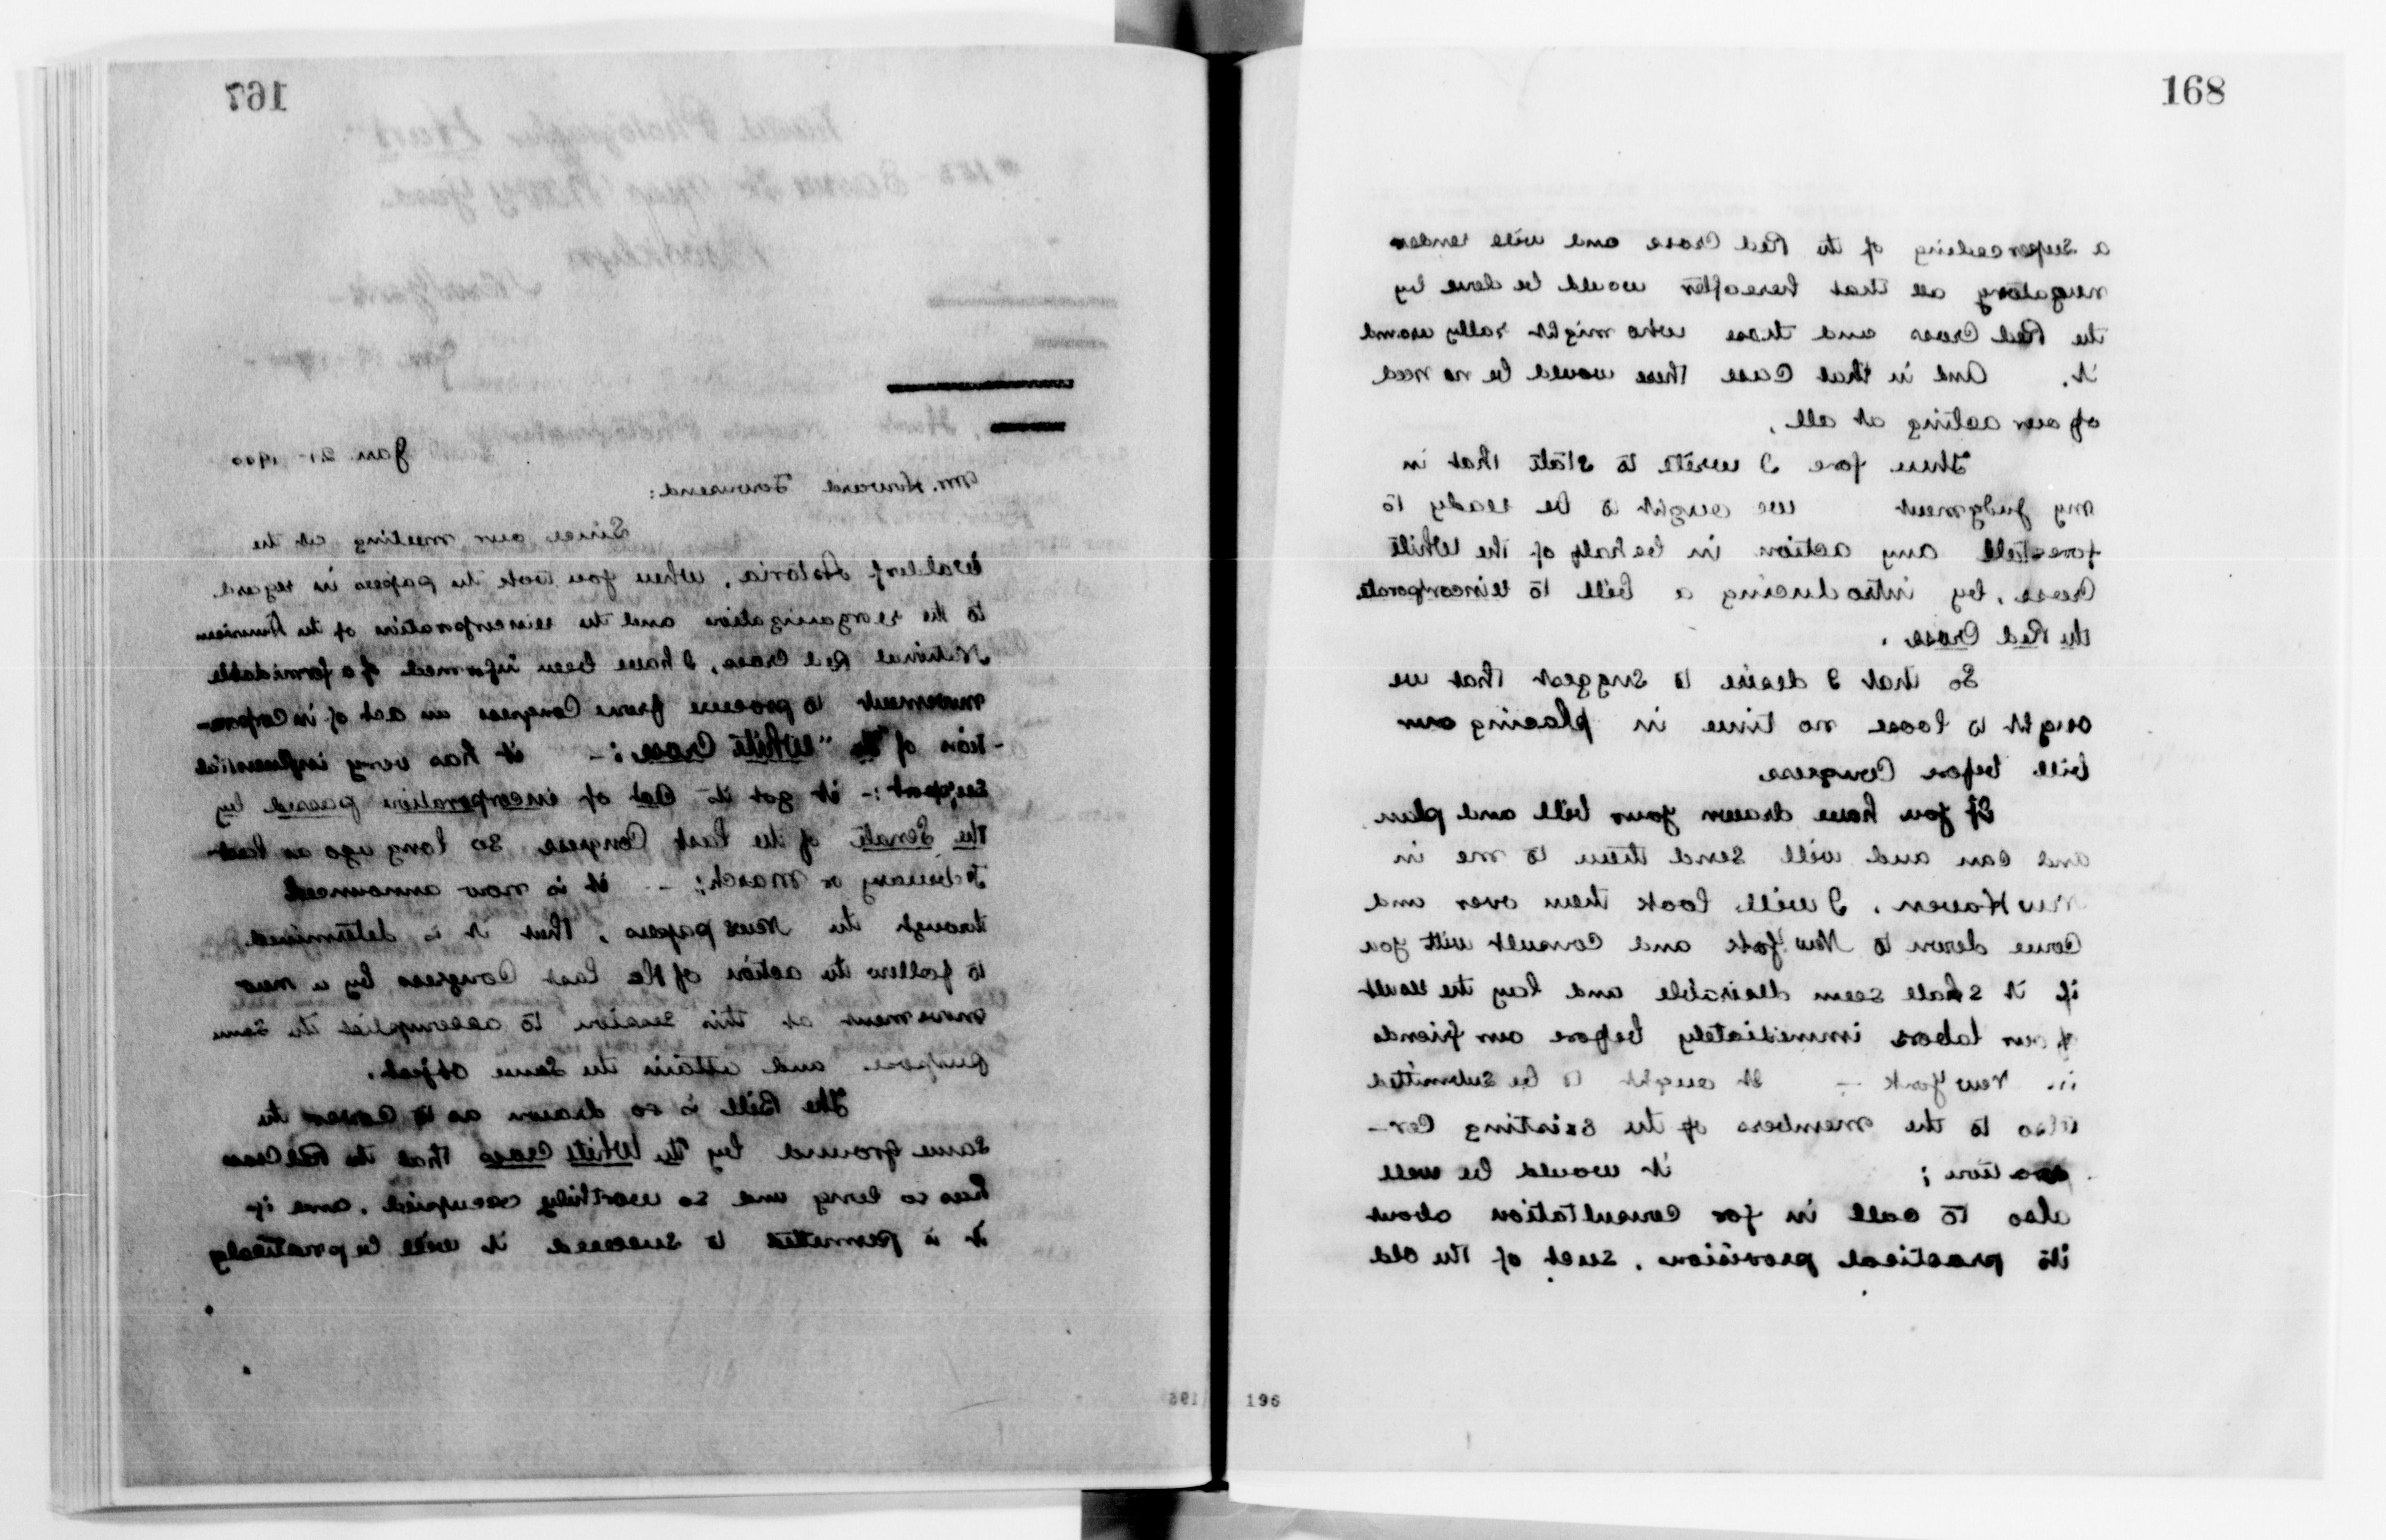 167
Jan 21 - 1900
Mr. Howard Townsend:
Since our meeting at the
Waldorf Astoria, when you took the papers in regard
to the reorganization and the reincorporation of the American
National Red Cross, I have been informed of a formidable
movement to procure from Congress an act of incorpora-
-tion of the "White Cross: - it has very influential
support: - it got its Act of incorporation passed by
the Senate of the last Congress so long ago as last
February or March; - it is now announced
through the News papers, that it is determined
to follow the action of the last Congress by a new
movement at this session to accomplish the same
purpose and attain the same object.
The Bill is so drawn as to cover the
same ground by the White Cross that the Red Cross
has so long and so worthily occupied, and if
it is permitted to succeed it will be practically
168
a superceding of the Red Cross and will render
nugatory all that hereafter would be done by
the Red Cross and those who might rally around
it. And in that case there would be no need
of our acting at all.
There fore I write to state that in
my judgment we ought to be ready to
forestall any action in behalf of the White
Cross, by introducing a bill to reincorporate
the Red Cross.
So that I desire to suggest that we
ought to loose no time in placing our
bill before Congress
If you have drawn your bill and plan
and can and will send them to me in
New Haven, I will look them over and
come down to New York and consult with you
if it shall seem desirable and lay the result
of our labors immediately before our friends
in New York - it ought to be submitted
also to the members of the existing Cor-
poration; it would be well
also to call in for consultation about
its practical provisions, such of the old
196